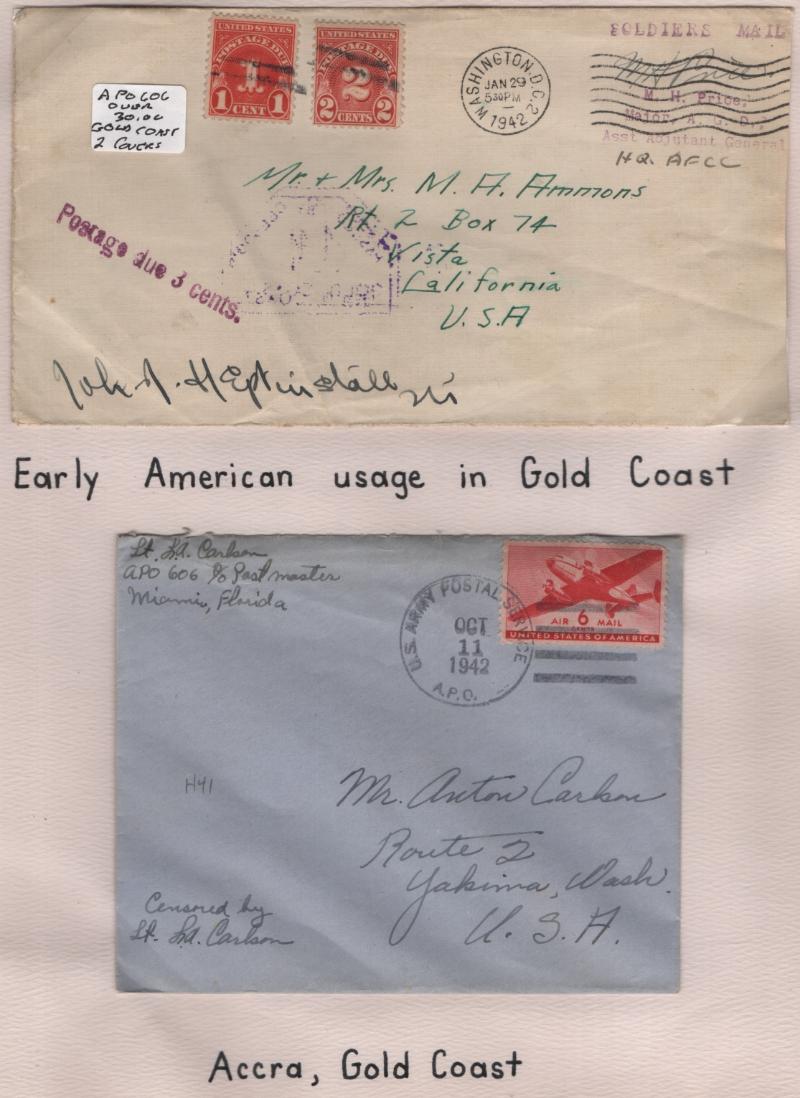 UNITED STATES
POSTAGE DUE
1 CENT 1
UNITED STATES
POSTAGE DUE
2
2 CENTS 2
WASHINGTON, D.C. 2
JAN 29
530 PM
1942
SOLDIERS MAIL
M. H. Price,
Major, A. G. D.,
Asst Adjutant General
HQ. AFCC
APO 606
OVER
30.00
GOLD COAST
2 COVERS
Mr. + Mrs. M. A. Ammons
Rt 2 Box 74
Vista
California
U.S.A
Postage due 3 cents.
John J. Heptinstall
Early American usage in Gold Coast
Lt. L.A. Carlson
APO 606 c/o Postmaster
Miami, Florida
U.S. ARMY POSTAL SERVICE
OCT
11
1942
A.P.O.
AIR 6 MAIL
CENTS
UNITED STATES OF AMERICA
H41
Mr. Anton Carlson
Route 2
Yakima, Wash.
U. S. A.
Censored by
Lt. L.A. Carlson
Accra, Gold Coast